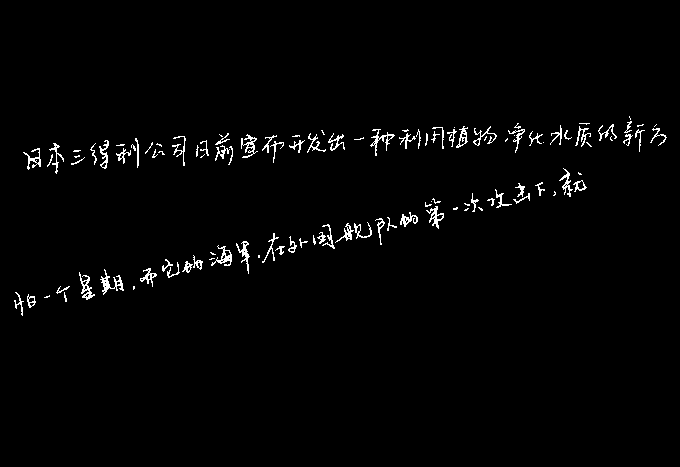 日本三得利公司日前宣布开发出一种利用植物净化水质的新方
怕一个星期,而它的海军,在外国舰队的第一次攻击下,就